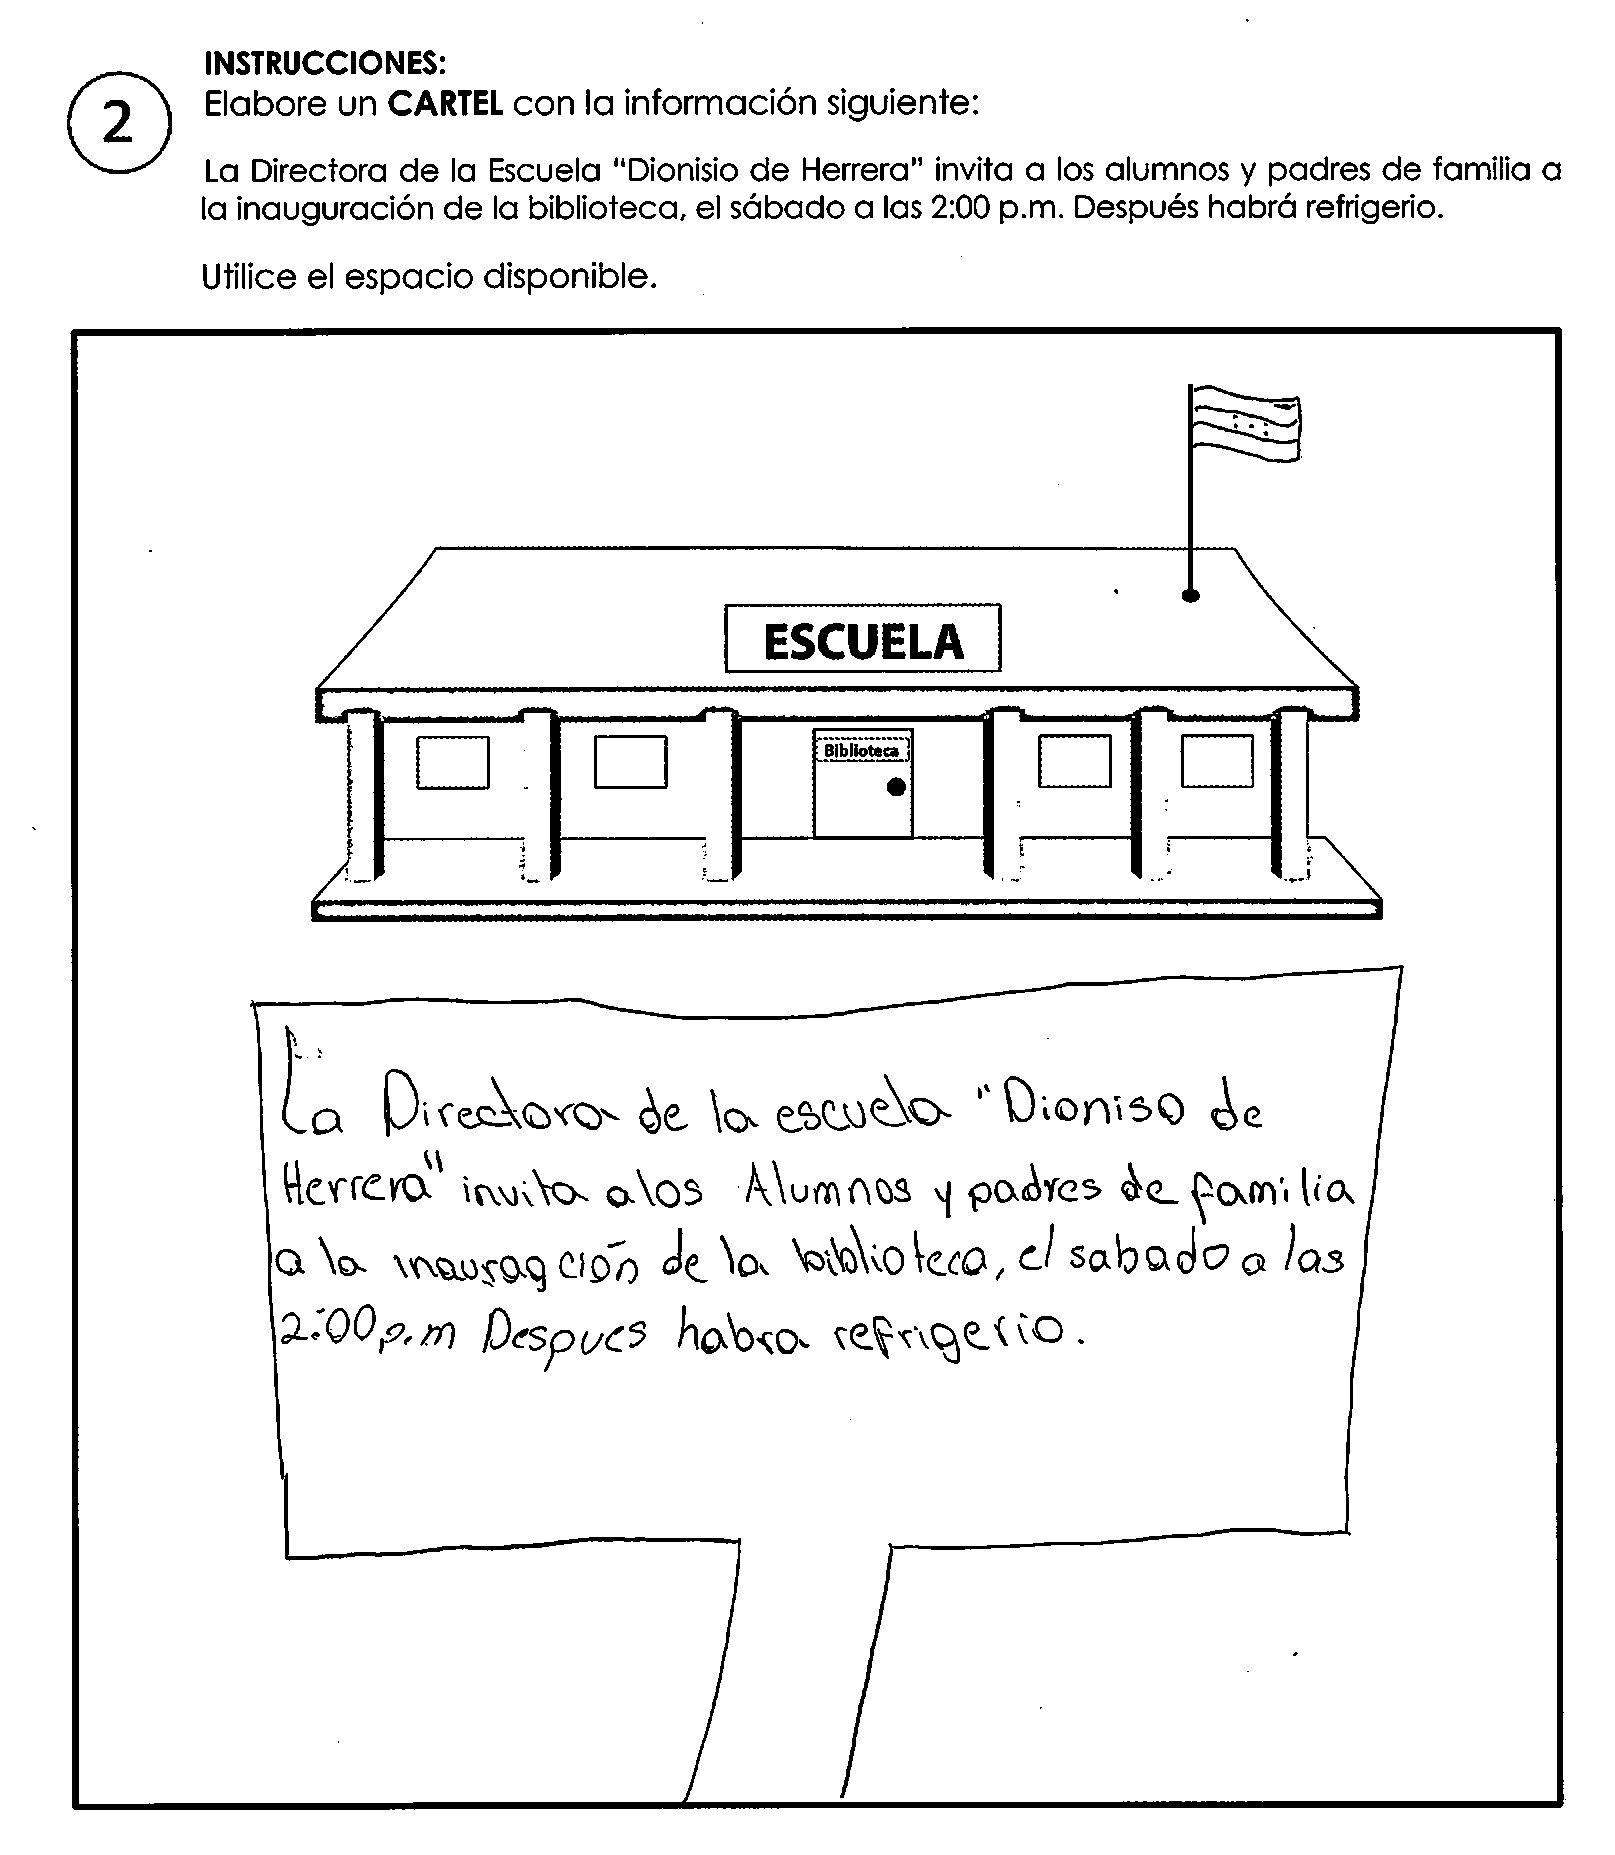 INSTRUCCIONES:
2
Elabore un CARTEL con la información siguiente:
La Directora de la Escuela "Dionisio de Herrera" invita a los alumnos y padres de familia a
la inauguración de la biblioteca, el sábado a las 2:00 p.m. Después habrá refrigerio.
Utilice el espacio disponible.
ESCUELA
Biblioteca
La Directora de la escuela "Dioniso de
Herrera" invita a los Alumnos y padres de familia
a la inauragción de la biblioteca, el sabado a las
2:00 p.m Despues habra refrigerio.